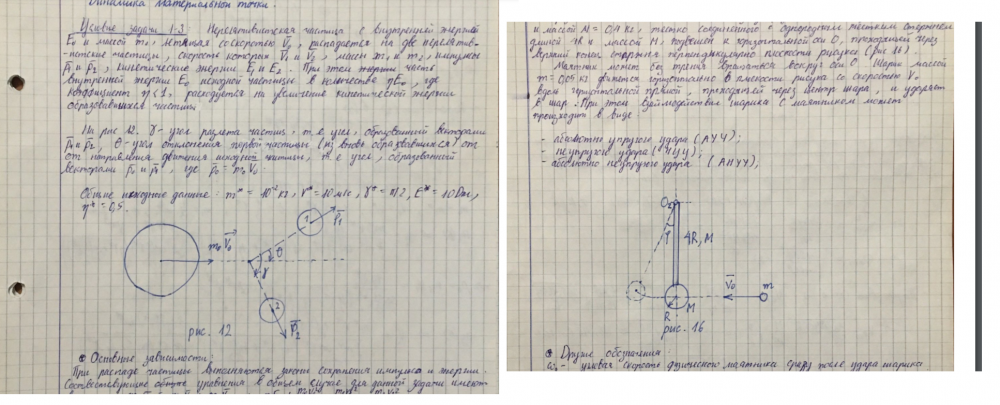 Динамика материальной точки.
Условие задачи 1.3: Нерелятивистская частица с внутренней энергией
E₀ и массой m₀, летящая со скоростью V̄₀, распадается на две нерелятив-
истские частицы, скорости которых V̄₁ и V̄₂, массы m₁ и m₂, импульсы
p̄₁ и p̄₂, кинетические энергии E₁ и E₂. При этом энергии часть
внутренней энергии E₀ исходной частицы в количестве ηE₀, где
коэффициент η<1, расходуется на увеличение кинетической энергии
образовавшихся частиц.
На рис 12. γ - угол разлета частиц, т.е угол, образованный векторами
p̄₁ и p̄₂, θ - угол отклонения первой частицы (из вновь образовавшихся) от
от направления движения исходной частицы, т.е угол, образованный
векторами p̄₀ и p̄₁, где p̄₀ = m₀V̄₀.
Общие исходные данные: m* = 10⁻² кг, V* = 10 м/с, γ* = π/2, E* = 10 Дж,
η* = 0,5.
m₀ V̄₀
1
p̄₁
θ
γ
2
p̄₂
рис. 12
Основные зависимости:
При распаде частицы выполняются законы сохранения импульса и энергии.
Соответствующие общие уравнения в общем случае для данной задачи имеют
и массой M = кг, жестко соединённого с однородным тонким стержнем
длиной 4R и массой M, подвешен к горизонтальной оси O, проходящей через
верхний конец стержня перпендикулярно плоскости рисунка (рис 16).
Маятник может без трения вращаться вокруг оси O. Шарик массой
m = 0,05 кг движется горизонтально в плоскости рисунка со скоростью V₀
вдоль горизонтальной прямой, проходящей через центр шара, и ударяет
в шар. При этом взаимодействие шарика с маятником может
происходить в виде:
- абсолютно упругого удара (АУУ);
неупругого удара (НУУ);
- абсолютно неупругого удара (АНУУ);
O
4R, M
V̄₀
m
R
M
рис. 16
Другие обозначения
- угловая скорость физического маятника сразу после удара шарика